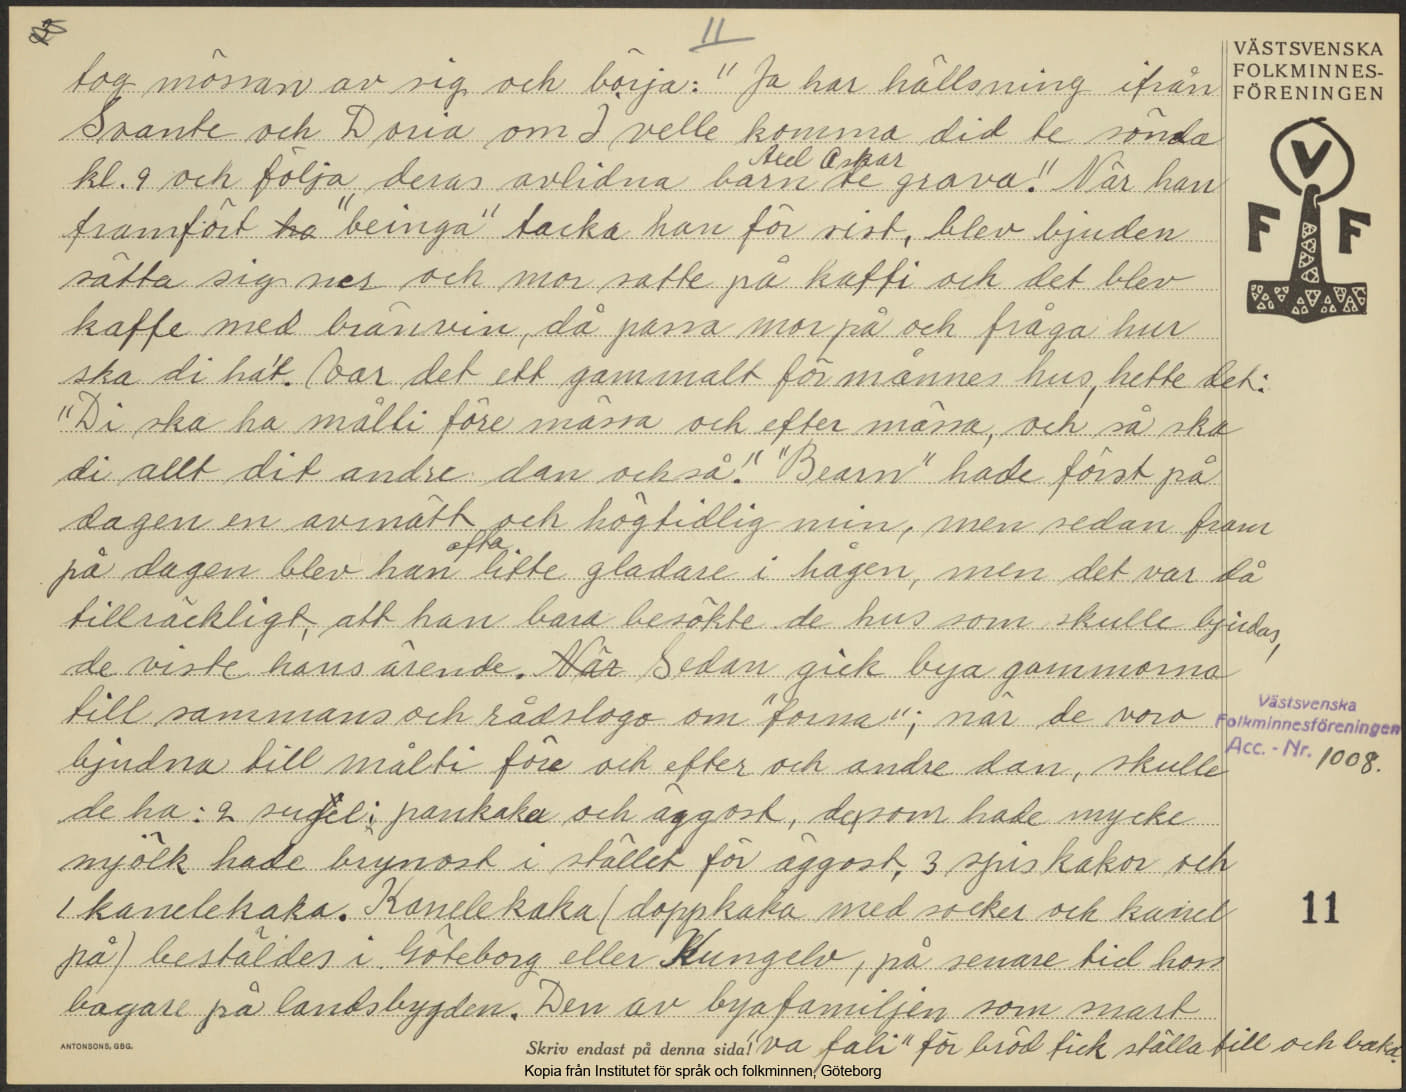 11
VÄSTSVENSKA
FOLKMINNES-
FÖRENINGEN
V
F F
tog mössan av sig och börja: "Ja har hällsning ifrån
Svante och Doria om I velle komma did te sönda
Axel Oskar
kl. 9 och följa deras avlidna barn te grava." När han
framfört ha "beinga" tacka han för sist, blev bjuden
sätta sig ner och mor satte på kaffi och det blev
kaffe med bränvin, då passa mor på och fråga hur
ska di hat. Var det ett gammalt förmånnes hus, hette det:
"Di ska ha målti före mässa och efter mässa, och så ska
di allt dit andre dan också." "Bearn" hade först på
dagen en avmätt och högtidlig min, men sedan fram
ofta
på dagen blev han litte gladare i hågen, men det var då
tillräckligt, att han bara besökte de hus som skulle bjudas,
de viste hans ärende. När Sedan gick bya gammorna
till sammans och rådslogo om "forna"; när de voro
bjudna till målti före och efter och andre dan, skulle
de ha: 2 sugel; pankaka och äggost, de som hade mycke
mjölk hade brynost i stället för äggost, 3 spiskakor och
1 kanelekaka. Kanelekaka (doppkaka med socker och kanel
på) bestäldes i Göteborg eller Kungelv, på senare tid hos
bagare på landsbygden. Den av byafamiljen som snart
"va fali" för bröd fick ställa till och baka.
Västsvenska
Folkminnesföreningen
Acc. - Nr. 1008.
11
ANTONSONS, GBG.
Skriv endast på denna sida!
Kopia från Institutet för språk och folkminnen, Göteborg